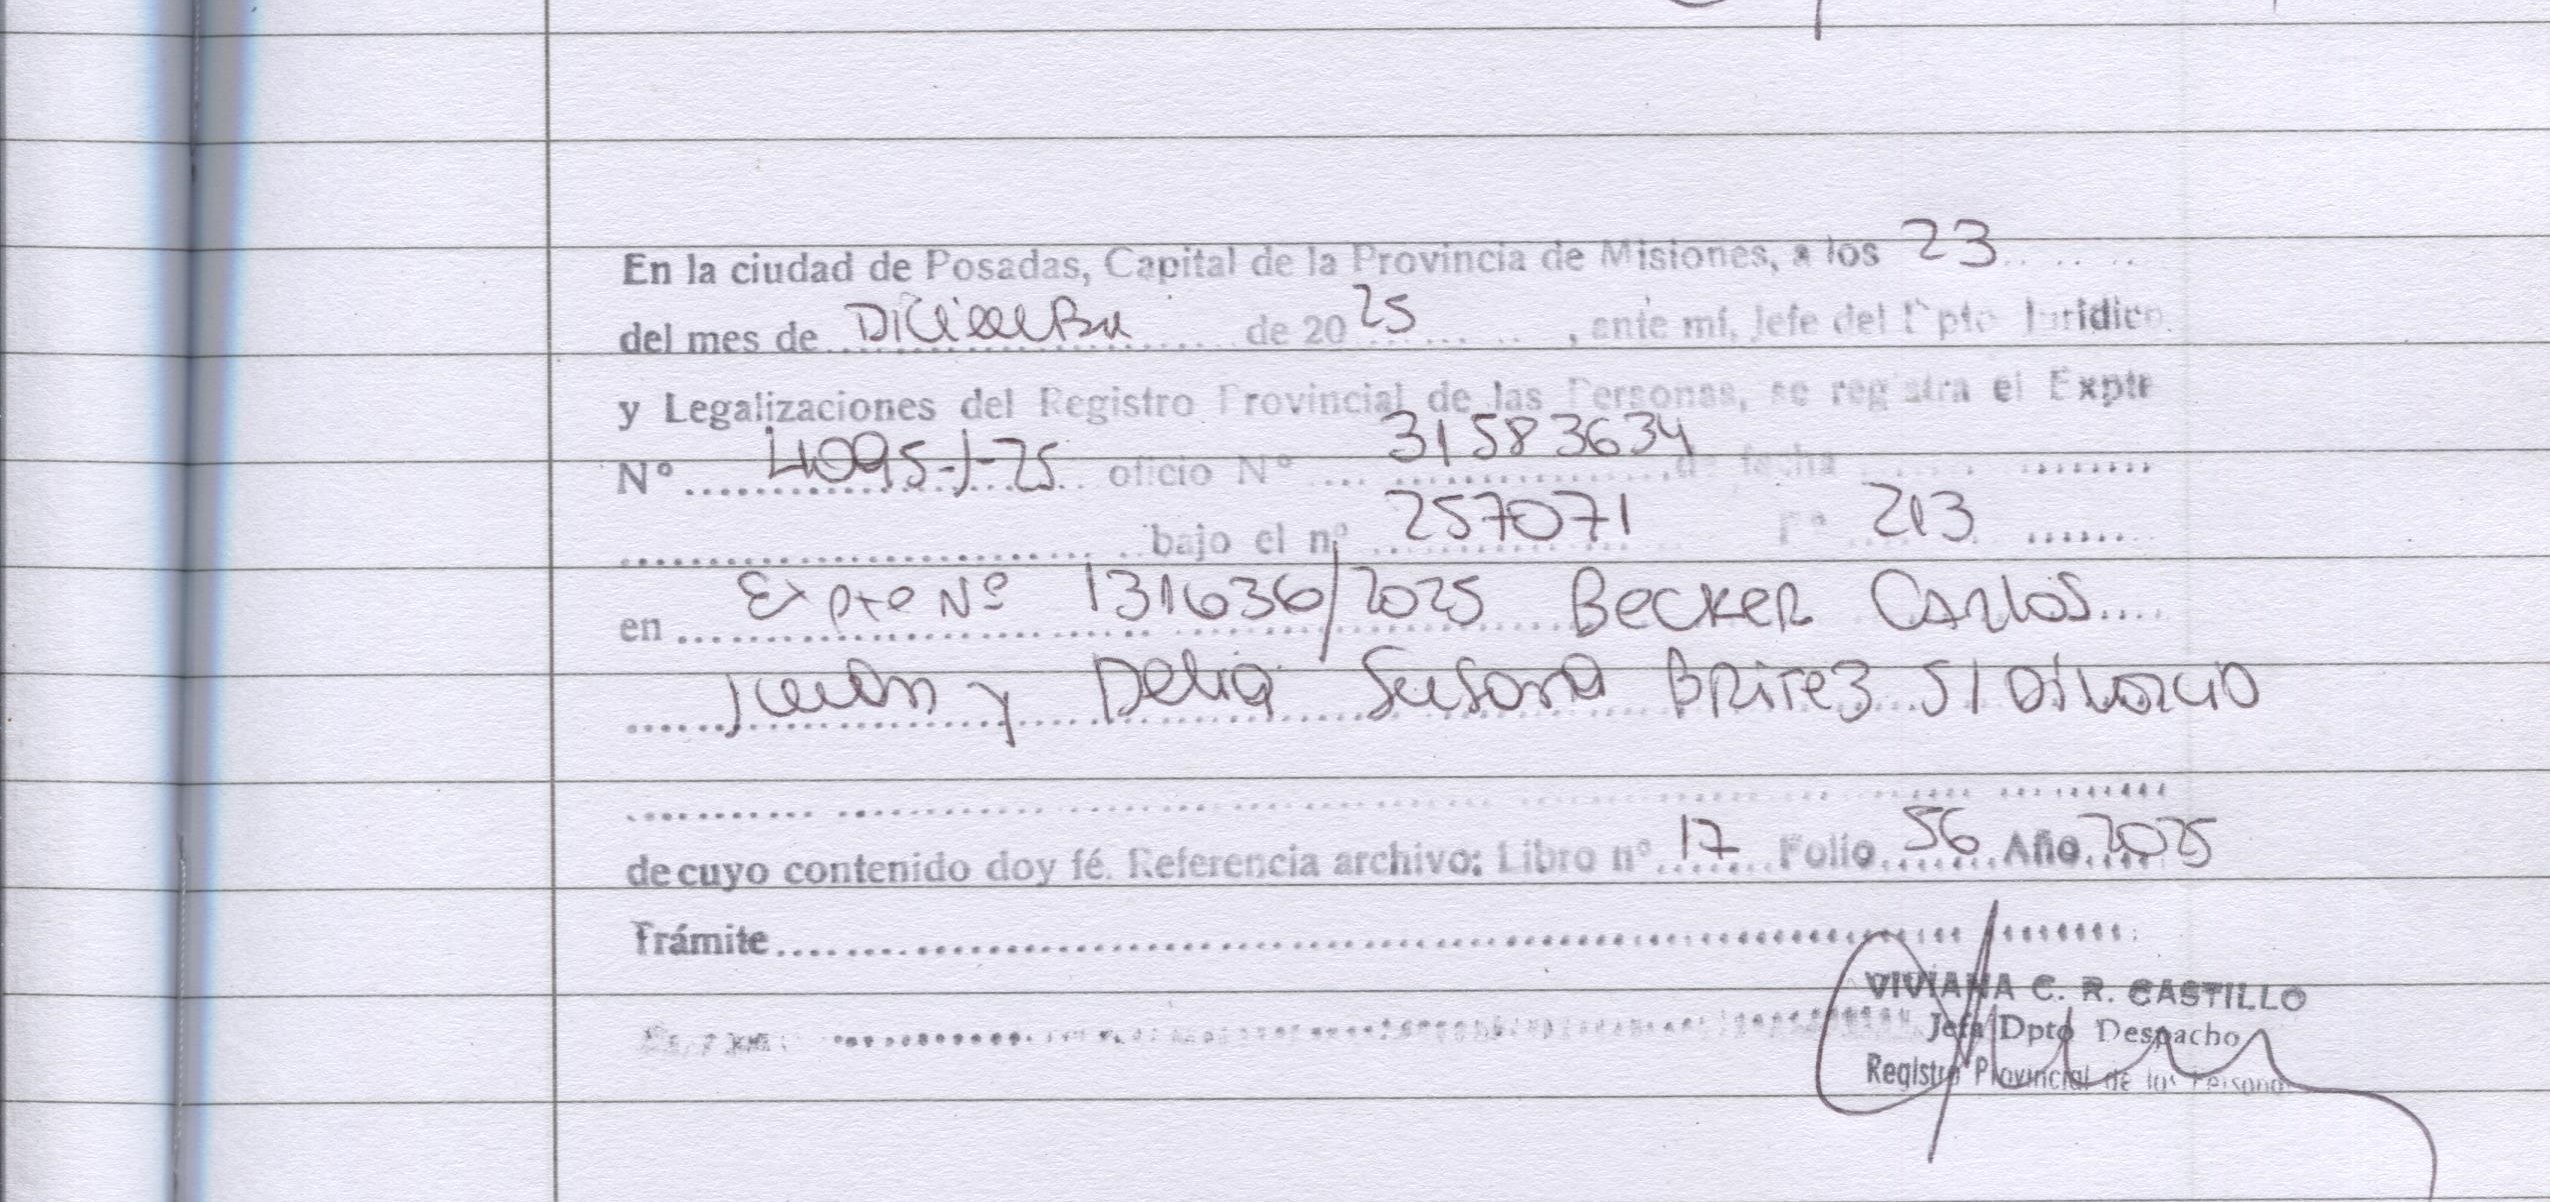 En la ciudad de Posadas, Capital de la Provincia de Misiones, a los 23
del mes de Diciembre de 2025, ante mí, Jefe del Dpto Jurídico
y Legalizaciones del Registro Provincial de las Personas, se registra el Expte
Nº 4095-J-25 oficio Nº 31583634 de fecha
bajo el nº 257071 Fº 213
en Expte Nº 131636/2025 Becker Carlos
Juan y Delia Susana Britez S/ Divorcio
de cuyo contenido doy fé. Referencia archivo: Libro nº 17 Folio 56 Año 2025
Trámite
VIVIANA C. R. CASTILLO
Jefa Dpto Despacho
Registro Provincial de las Personas